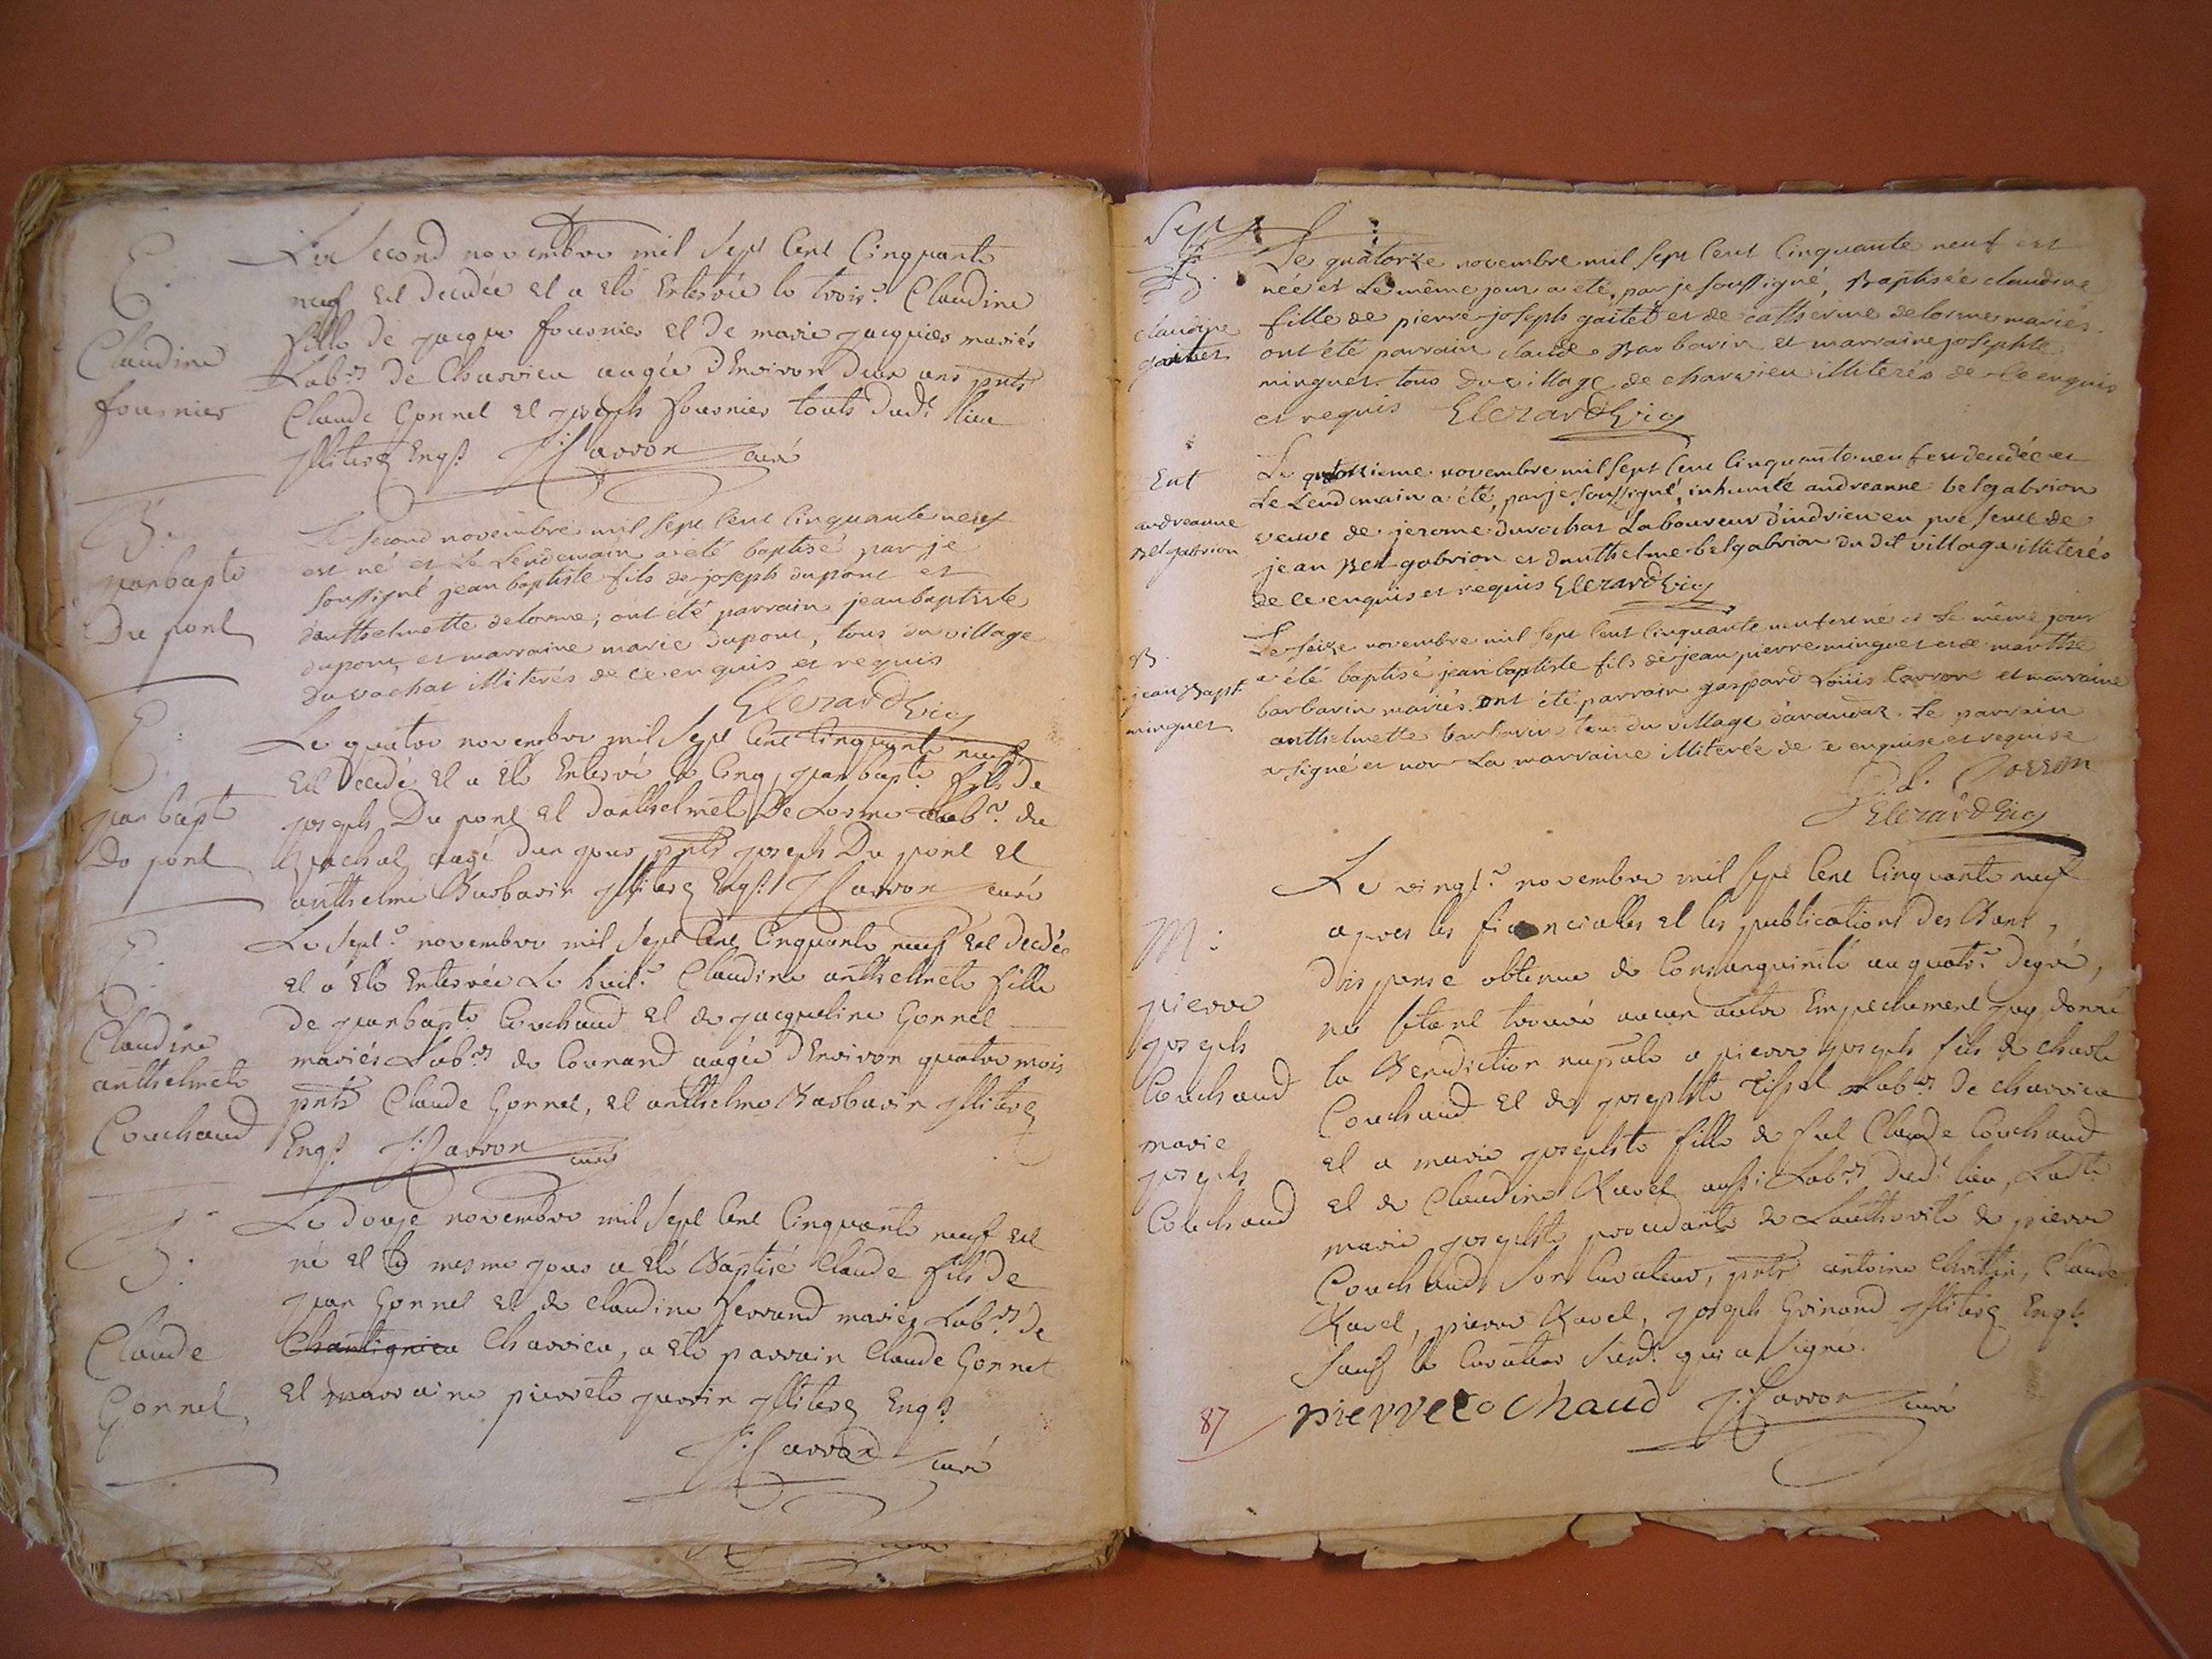 E.
Claudine
fournier
Le Second novembre mil Sept Cent Cinquante
neuf est decedée et a eté Enterrée le trois.e Claudine
fille de jacque fournier et de marie jacquier mariés
Lab.rs de Charvieu aagée d'Environ deux ans pnts
Claude Gonnet et joseph fournier touts dud.t lieu
Jlliterez Enq.s J: Carron curé
B.
jeanbapte
Du pont
Le second novembre mil sept Cent Cinquante neuf
est né et le Lendemain a été baptisé par je
soussigné jean baptiste fils de joseph dupont et
d'anthelmette delorme; ont été parrain jean baptiste
dupont, et marraine marie dupont, tous du village
du vachat illiterés de ce enquis et requis
Elezard Vic
E.
jean bapt
Du pont
Le quatre novembre mil Sept Cent Cinquante neuf
Est decedé et a eté Enterré le Cinq, jean bapte fils de
joseph Du pont et d'anthelmete De Lorme Lab.rs du
Vachat aagé d'un jour pnts joseph Du pont et
anthelme Barbarin Jlliterez Enq.s J Carron curé
E.
Claudine
anthelmete
Couchaud
Le Sept.e novembre mil Sept Cent Cinquante neuf Est decedée
et a eté Enterrée Le huit.e Claudine anthelmete fille
de jean bapte Couchaud et de jacqueline Gonnet
mariés Lab.rs de Cournand aagée d'Environ quatre mois
pnts Claude Gonnet, et anthelme Barbarin Jlliterez
Enq.s J: Carron curé
B.
Claude
Gonnet
Le douze novembre mil Sept Cent Cinquante neuf est
né et le mesme jour a eté Baptisé Claude fils de
jean Gonnet et de claudine ferrand mariés Lab.rs de
Chantignieu Charvieu, a eté parrain Claude Gonnet
et marraine pierrete Jlliterez Enq.s
J: Carron curé
Sept
B.
claudine
gaitet
Le quatorze novembre mil sept Cent Cinquante neuf est
née et Le même jour a été, par je soussigné, Baptisée claudine
fille de pierre joseph gaitet et de catherine delorme mariés.
ont été parrain claude Barbarin et marraine josephte
minguet. tous du village de charvieu illiterés de ce enquis
et requis Elezard Vic
Ent
andreanne
Belgabrion
Le quatorzieme novembre mil sept Cent Cinquante neuf est decedée et
Le Lendemain a été, par je soussigné, inhumée andreanne belgabrion
veuve de jerome durochat Laboureur d'indrieu en présence de
jean Belgabrion et d'anthelme belgabrion du dit village illiterés
de ce enquis et requis Elezard Vic
B.
jean Bapt.
minguet
Le seize novembre mil sept Cent Cinquante neuf est né et le même jour
a été baptisé jean baptiste fils de jean pierre minguet et de marthe
barbarin mariés. ont été parrain gaspard Loüis Carron et marraine
anthelmette barbarin tous du village d'arandaz. le parrain
a signé et non La marraine illiterée de ce enquise et requise
G. L. Carron
Elezard Vic
M:
pierre
joseph
Couchaud
marie
joseph
Couchaud
Le vingt.e novembre mil Sept Cent Cinquante neuf
apres les fiancialles et les publications des Bans,
Dispense obtenue de Consanguinité au quatr.e degré,
ne s'etant trouvé aucun autre Empechement j'ay donné
la Benediction nuptiale a pierre joseph fils de charle
Couchaud et de josephte Tissot Lab.rs de charvieu
et a marie josephte fille de feu Claude Couchaud
et de Claudine Ravet aussi Lab.rs dud.t lieu, Lad.te
marie josephte procedante de L'authorité de pierre
Couchaud Son Curateur, pnts antoine Chritin, Claude
Ravet, pierre Ravet, joseph Grinand Jlliterez Enq.s
Sauf le Curateur Susd.t qui a Signé.
pierre cochaud J: Carron curé
87